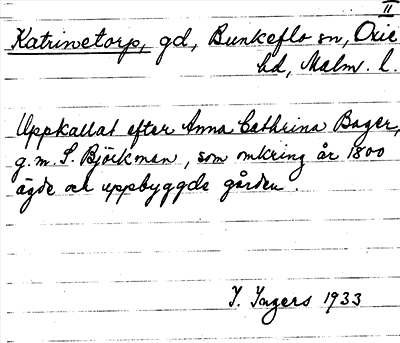 II
Katrinetorp, gd, Bunkeflo sn, Oxie
hd, Malm. l.
Uppkallat efter Anna Cathrina Bager,
g. m. S. Björkman, som omkring år 1800
ägde och uppbyggde gården.
I. Ingers 1933